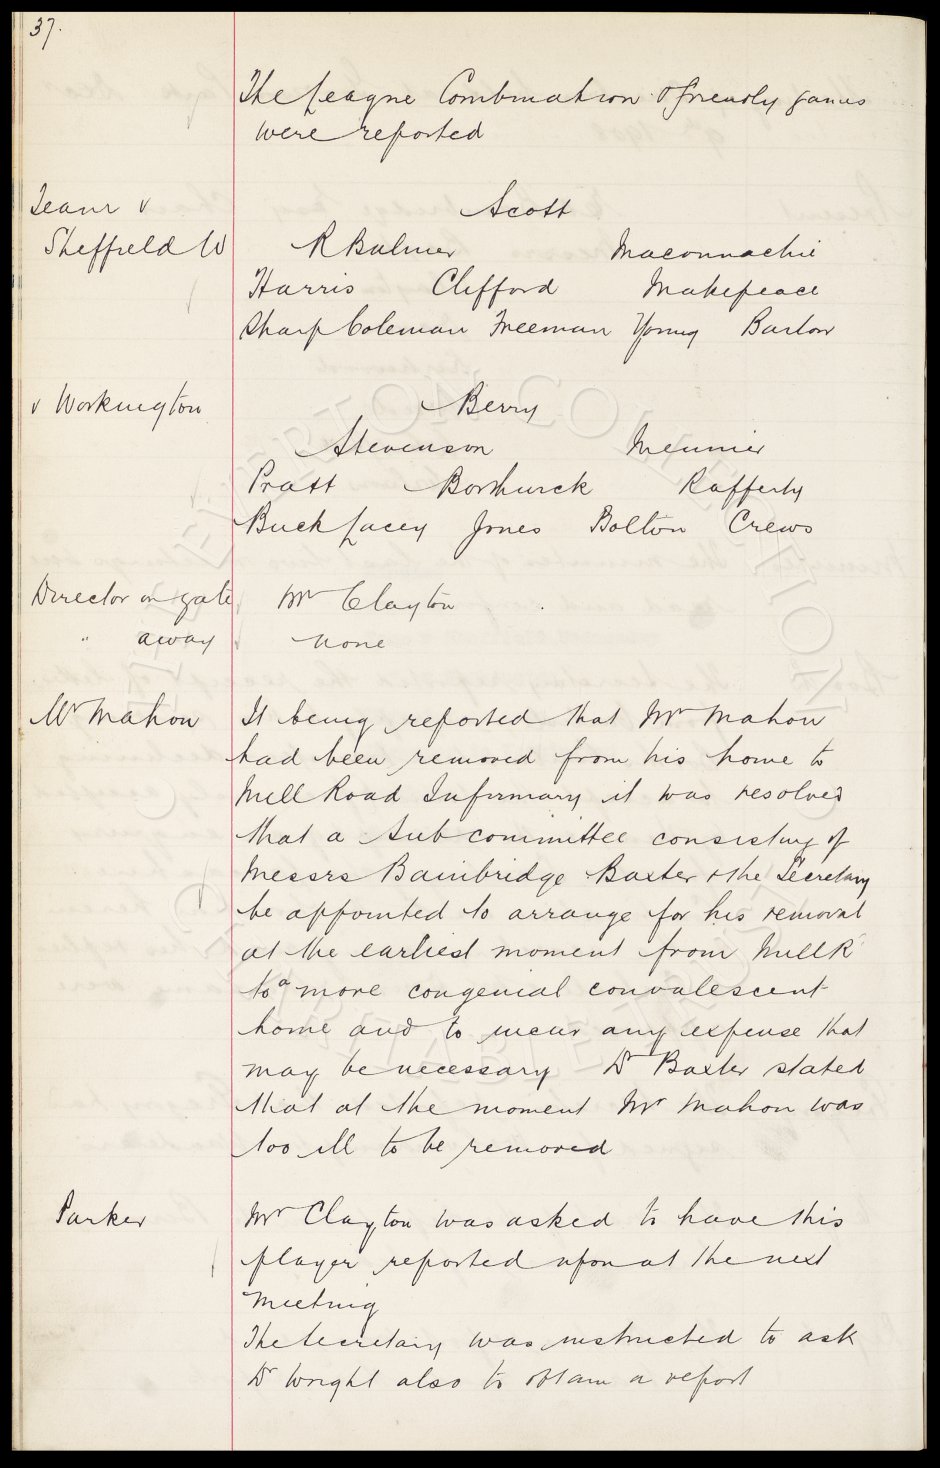 37.
The League Combination & friendly games
were reported
Team v
Scott
Sheffield W
R Balmer Maconnachie
Harris Clifford Makepeace
Sharp Coleman Freeman Young Barlow
v Workington
Berry
Stevenson Meunier
Pratt Borthwick Rafferty
Buck Lacey Jones Bolton Crews
Director on gate Mr Clayton
" away none
Mr Mahon It being reported that Mr Mahon
had been removed from his home to
Mill Road Infirmary it was resolved
that a sub committee consisting of
Messrs Bainbridge Baxter & the Secretary
be appointed to arrange for his removal
at the earliest moment from Mill R
to a more congenial convalescent
home and to incur any expense that
may be necessary Dr Baxter stated
that at the moment Mr Mahon was
too ill to be removed
Parker Mr Clayton was asked to have this
player reported upon at the next
meeting
The Secretary was instructed to ask
Dr Wright also to obtain a report